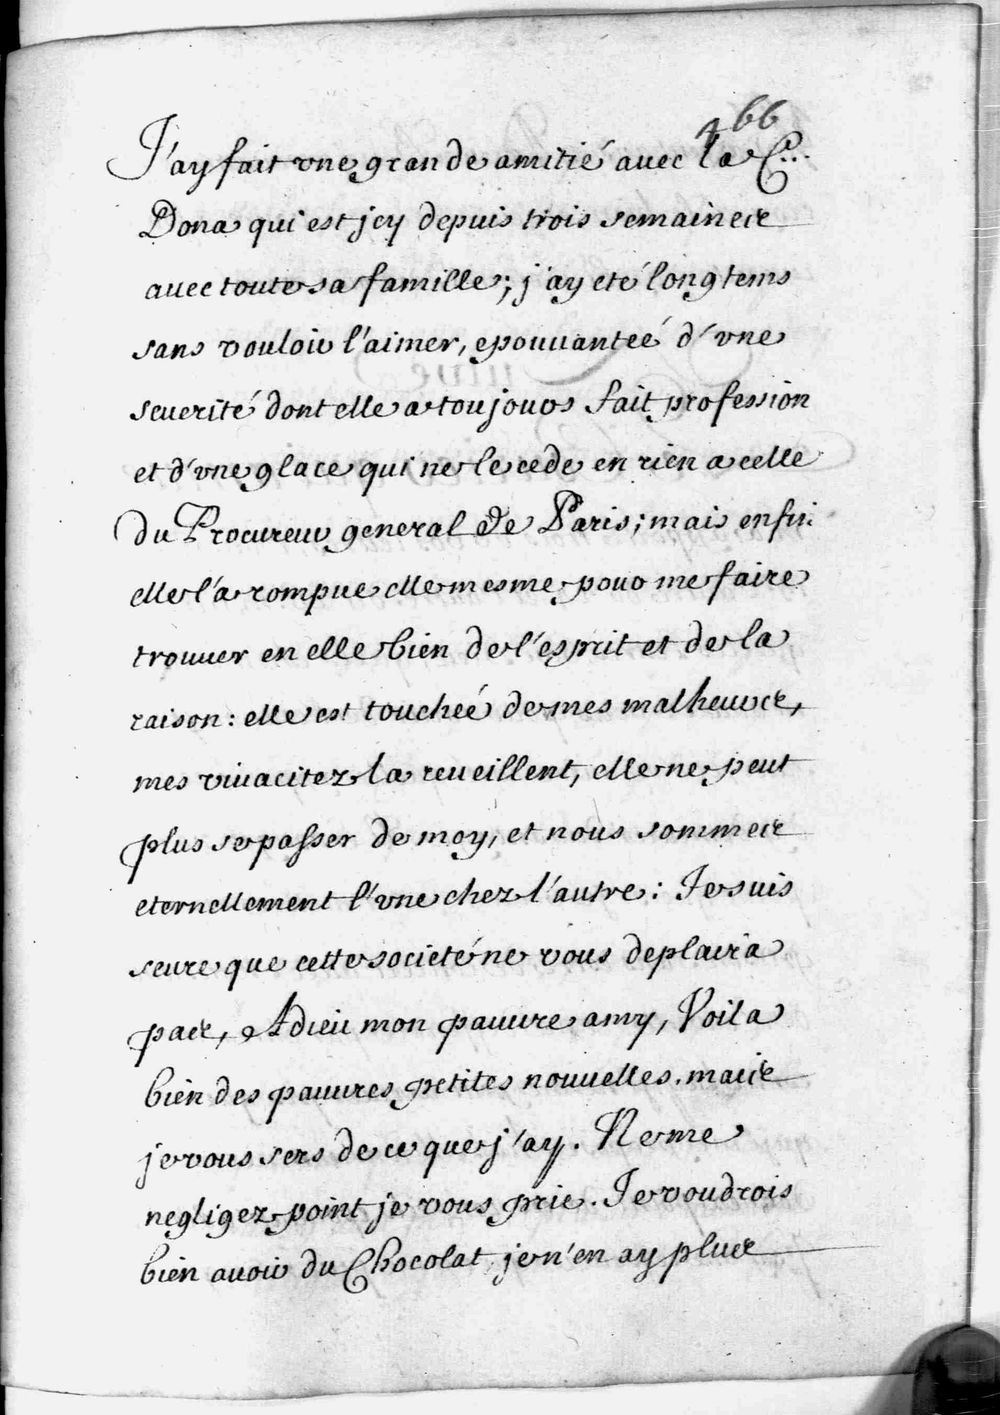 466
J'ay fait vne grande amitié auec la C.^e..
Dona qui est jcy depuis trois semaines
auec toute sa famille; j'ay eté longtems
sans vouloir l'aimer, epouuanteé d'vne
seuerité dont elle a toujours fait profession
et d'vne glace qui ne le cede en rien a celle
du Procureur general de Paris; mais enfin
elle l'a rompue elle mesme pour me faire
trouuer en elle bien de l'esprit et de la
raison: elle est toucheé de mes malheurs,
mes viuacitez la reueillent, elle ne peut
plus se passer de moy, et nous sommes
eternellement l'vne chez l'autre: Je suis
seure que cette societé ne vous deplaira
pas, Adieu mon pauure amy, Voila
bien des pauures petites nouuelles. mais
je vous sers de ce que j'ay. Ne me
negligez point je vous prie. Je voudrois
bien auoir du Chocolat, je n'en ay plus